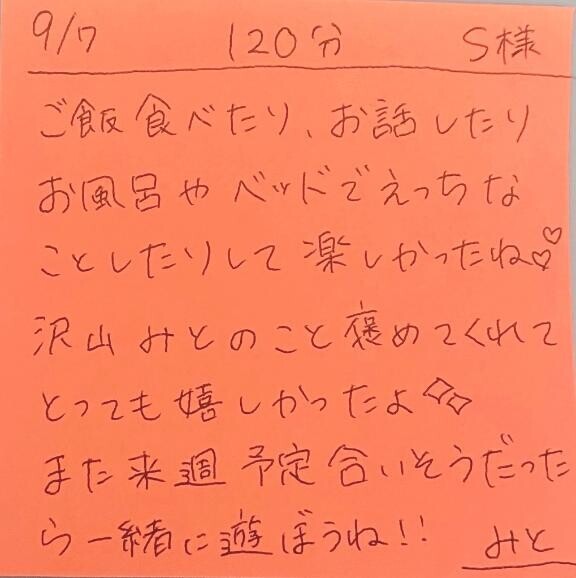 9/7 120分 S様
ご飯食べたり、お話したり
お風呂やベッドでえっちな
ことしたりして楽しかったね♡♡
沢山みとのこと褒めてくれて
とっても嬉しかったよ
また来週予定合いそうだった
ら一緒に遊ぼうね!!
みと